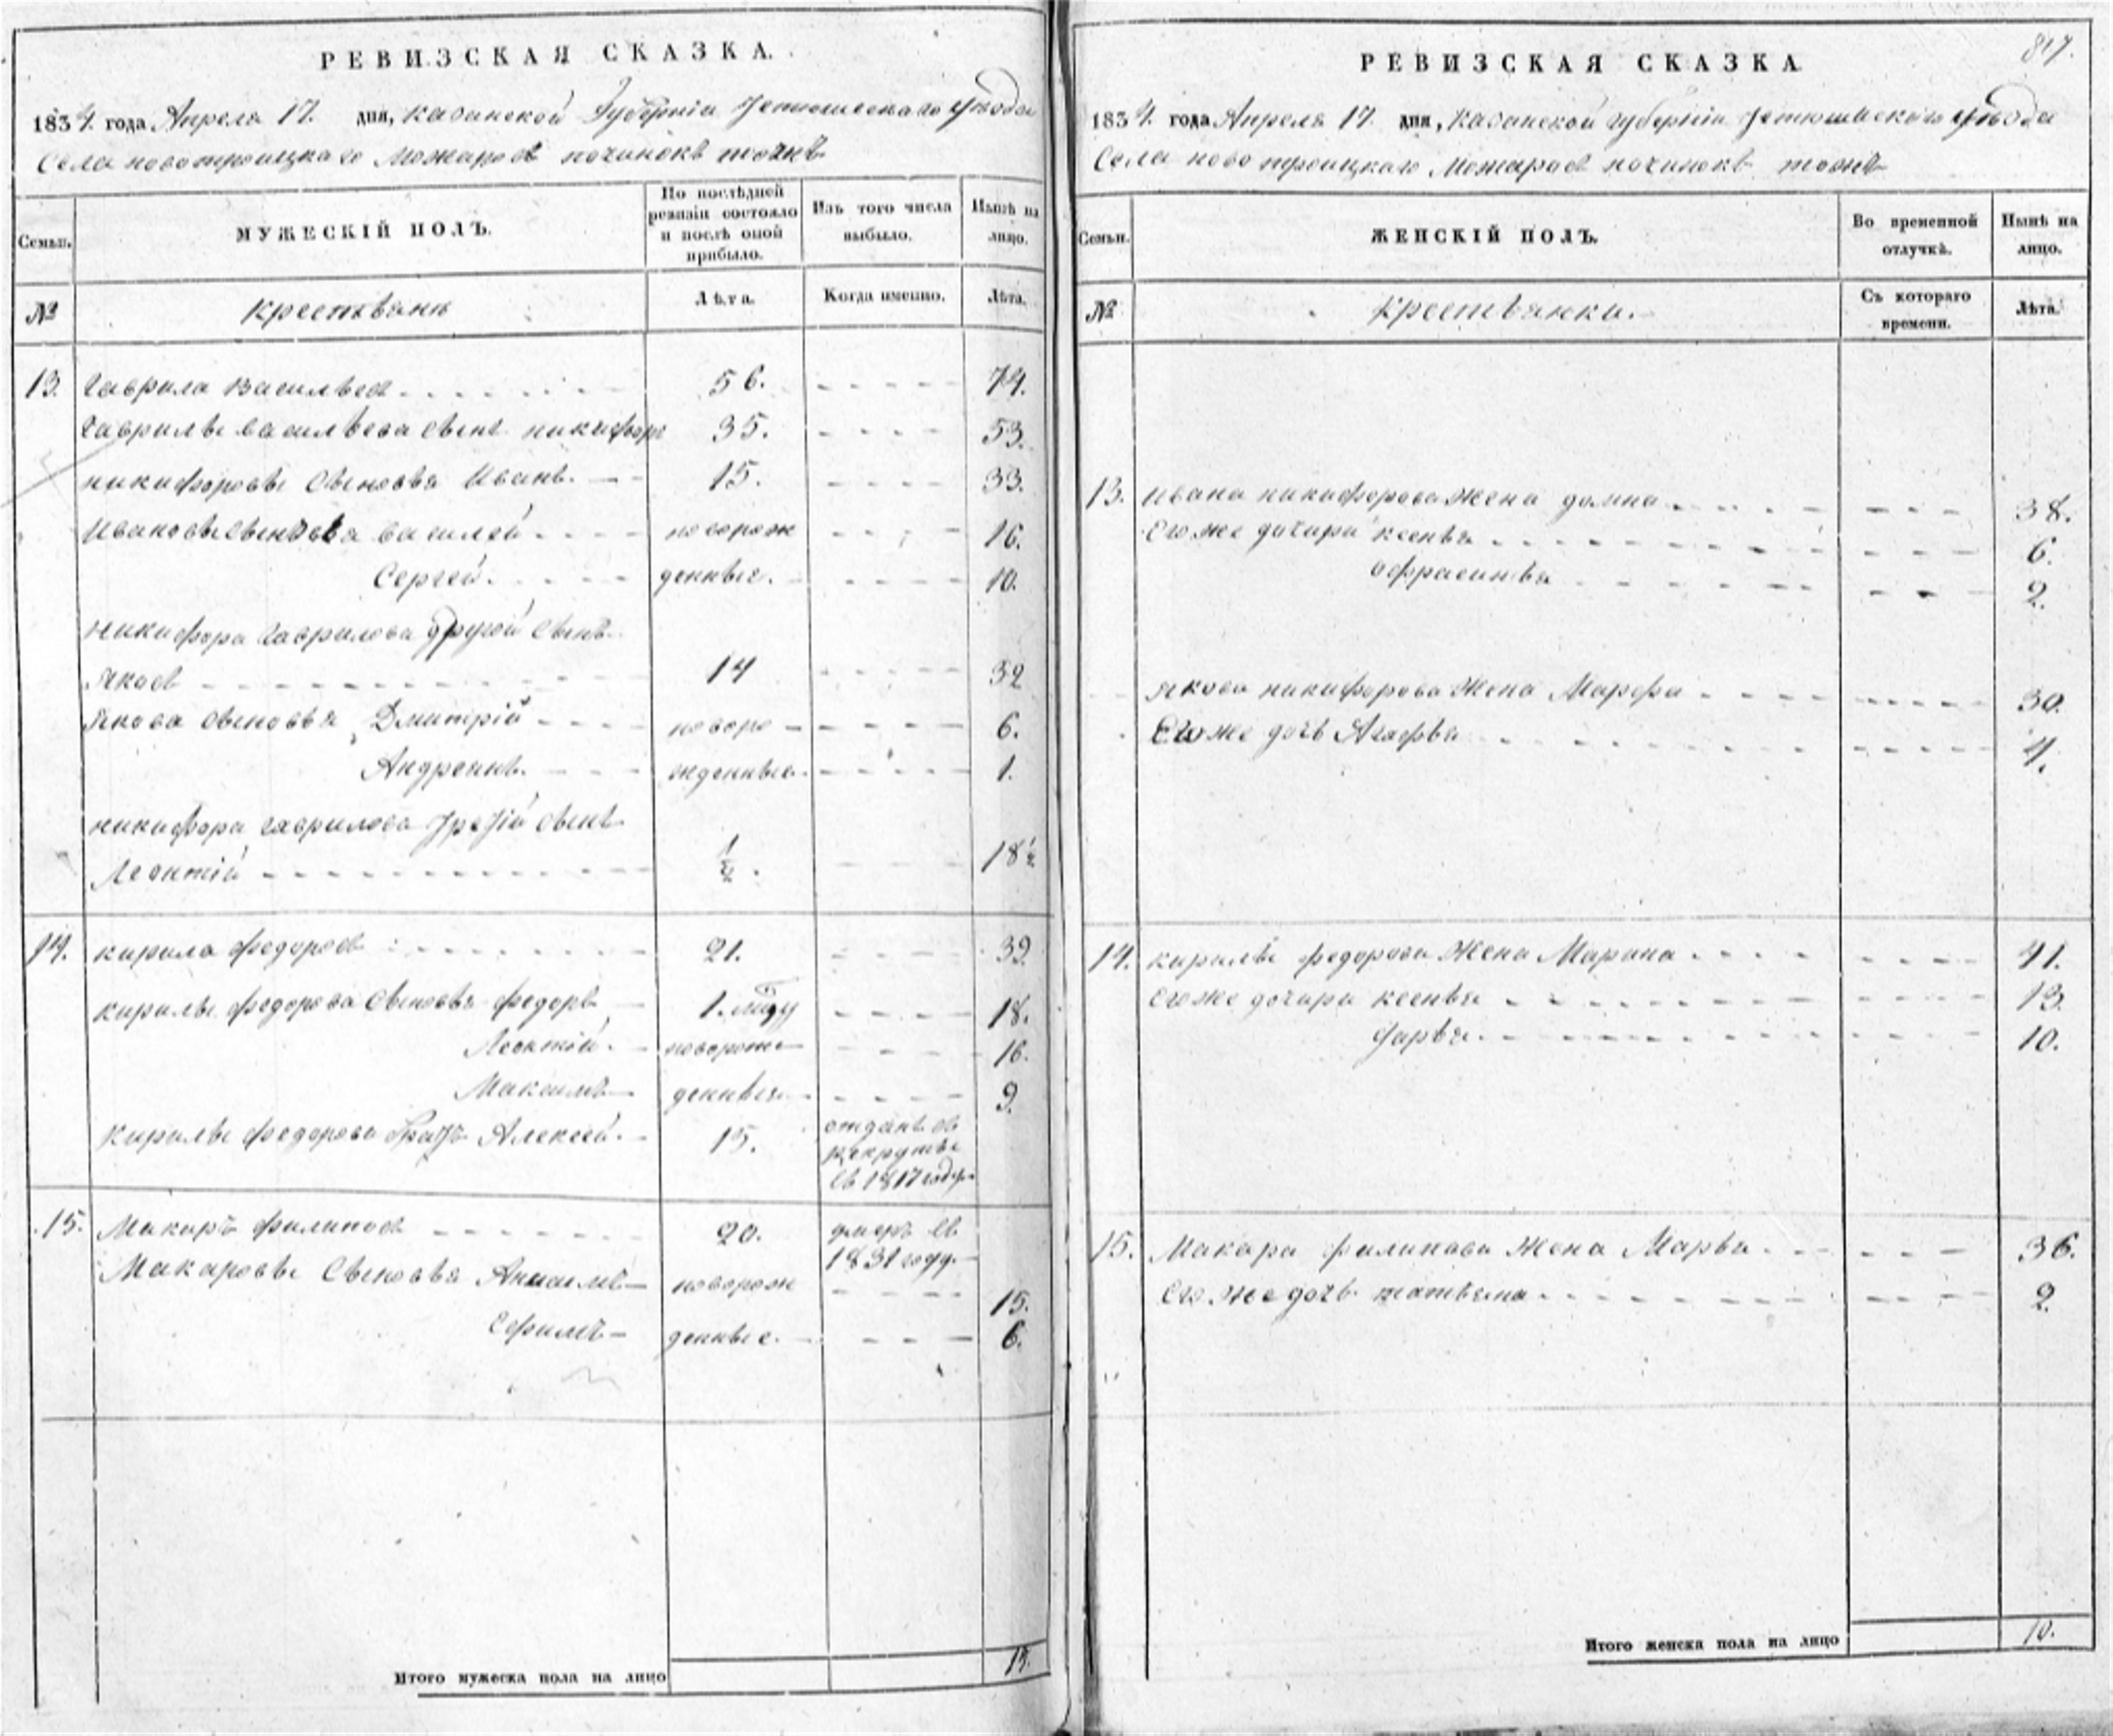 РЕВИЗСКАЯ СКАЗКА.
1834. года Апреля 17. дня, казанской Губернiи тетюшескаго уѣзда
Села новотроицкаго Можаров починокъ тожъ
Семьи.
МУЖЕСКIЙ ПОЛЪ.
По послѣдней ревизiи состояло и послѣ оной прибыло.
Изъ того числа выбыло.
Нынѣ на лицо.
№
крестьянѣ
Лѣта.
Когда именно.
Лѣта.
13. Гаврила Васильев 56. 74.
Гаврилы васильева сынъ никифоръ 35. 53.
никифоровы сыновья Иванъ. 15. 33.
Ивановы сыновья василей новорож 16.
Сергей. денные. 10.
никифора гаврилова другой сынъ
Яков 14 32
Якова сыновья Дмитрiй новоро 6.
Андреянъ. жденные. 1.
никифора гаврилова третiй сынъ
Леонтiй ½. 18½
14. кирила федоров 21. 39.
кирилы федорова сыновья федоръ 1. году 18.
Леонтiй. новорож 16.
Максимъ денныя 9.
кирилы федорова братъ Алексей. 15. отданъ в
рекруты
въ 1817 году.
15. Макаръ филипов 20. умеръ въ
1831 году.
Макаровы сыновья Анисимъ новорож 15.
Ефимъ денные. 6.
Итого мужеска пола на лицо 13.
817.
РЕВИЗСКАЯ СКАЗКА
1834. года Апреля 17. дня, казанской губернiи тетюшискаго уѣзда
Села новотроицкаго Можаров починокъ тожъ
Семьи.
ЖЕНСКIЙ ПОЛЪ.
Во временной отлучкѣ.
Нынѣ на лицо.
№
крестьянки.
Съ котораго времени.
Лѣта.
13. ивана никифорова жена домна 38.
Его же дочири ксенья 6.
Офрасинья 2.
якова никифорова жена Марфа 30.
Его же дочь Агафья 4.
14. кирилы федорова жена Марина 41.
Его же дочири ксенья 13.
дарья. 10.
15. Макара филипова жена Марья. 36.
Его же дочь татьяна 2.
Итого женска пола на лицо 10.